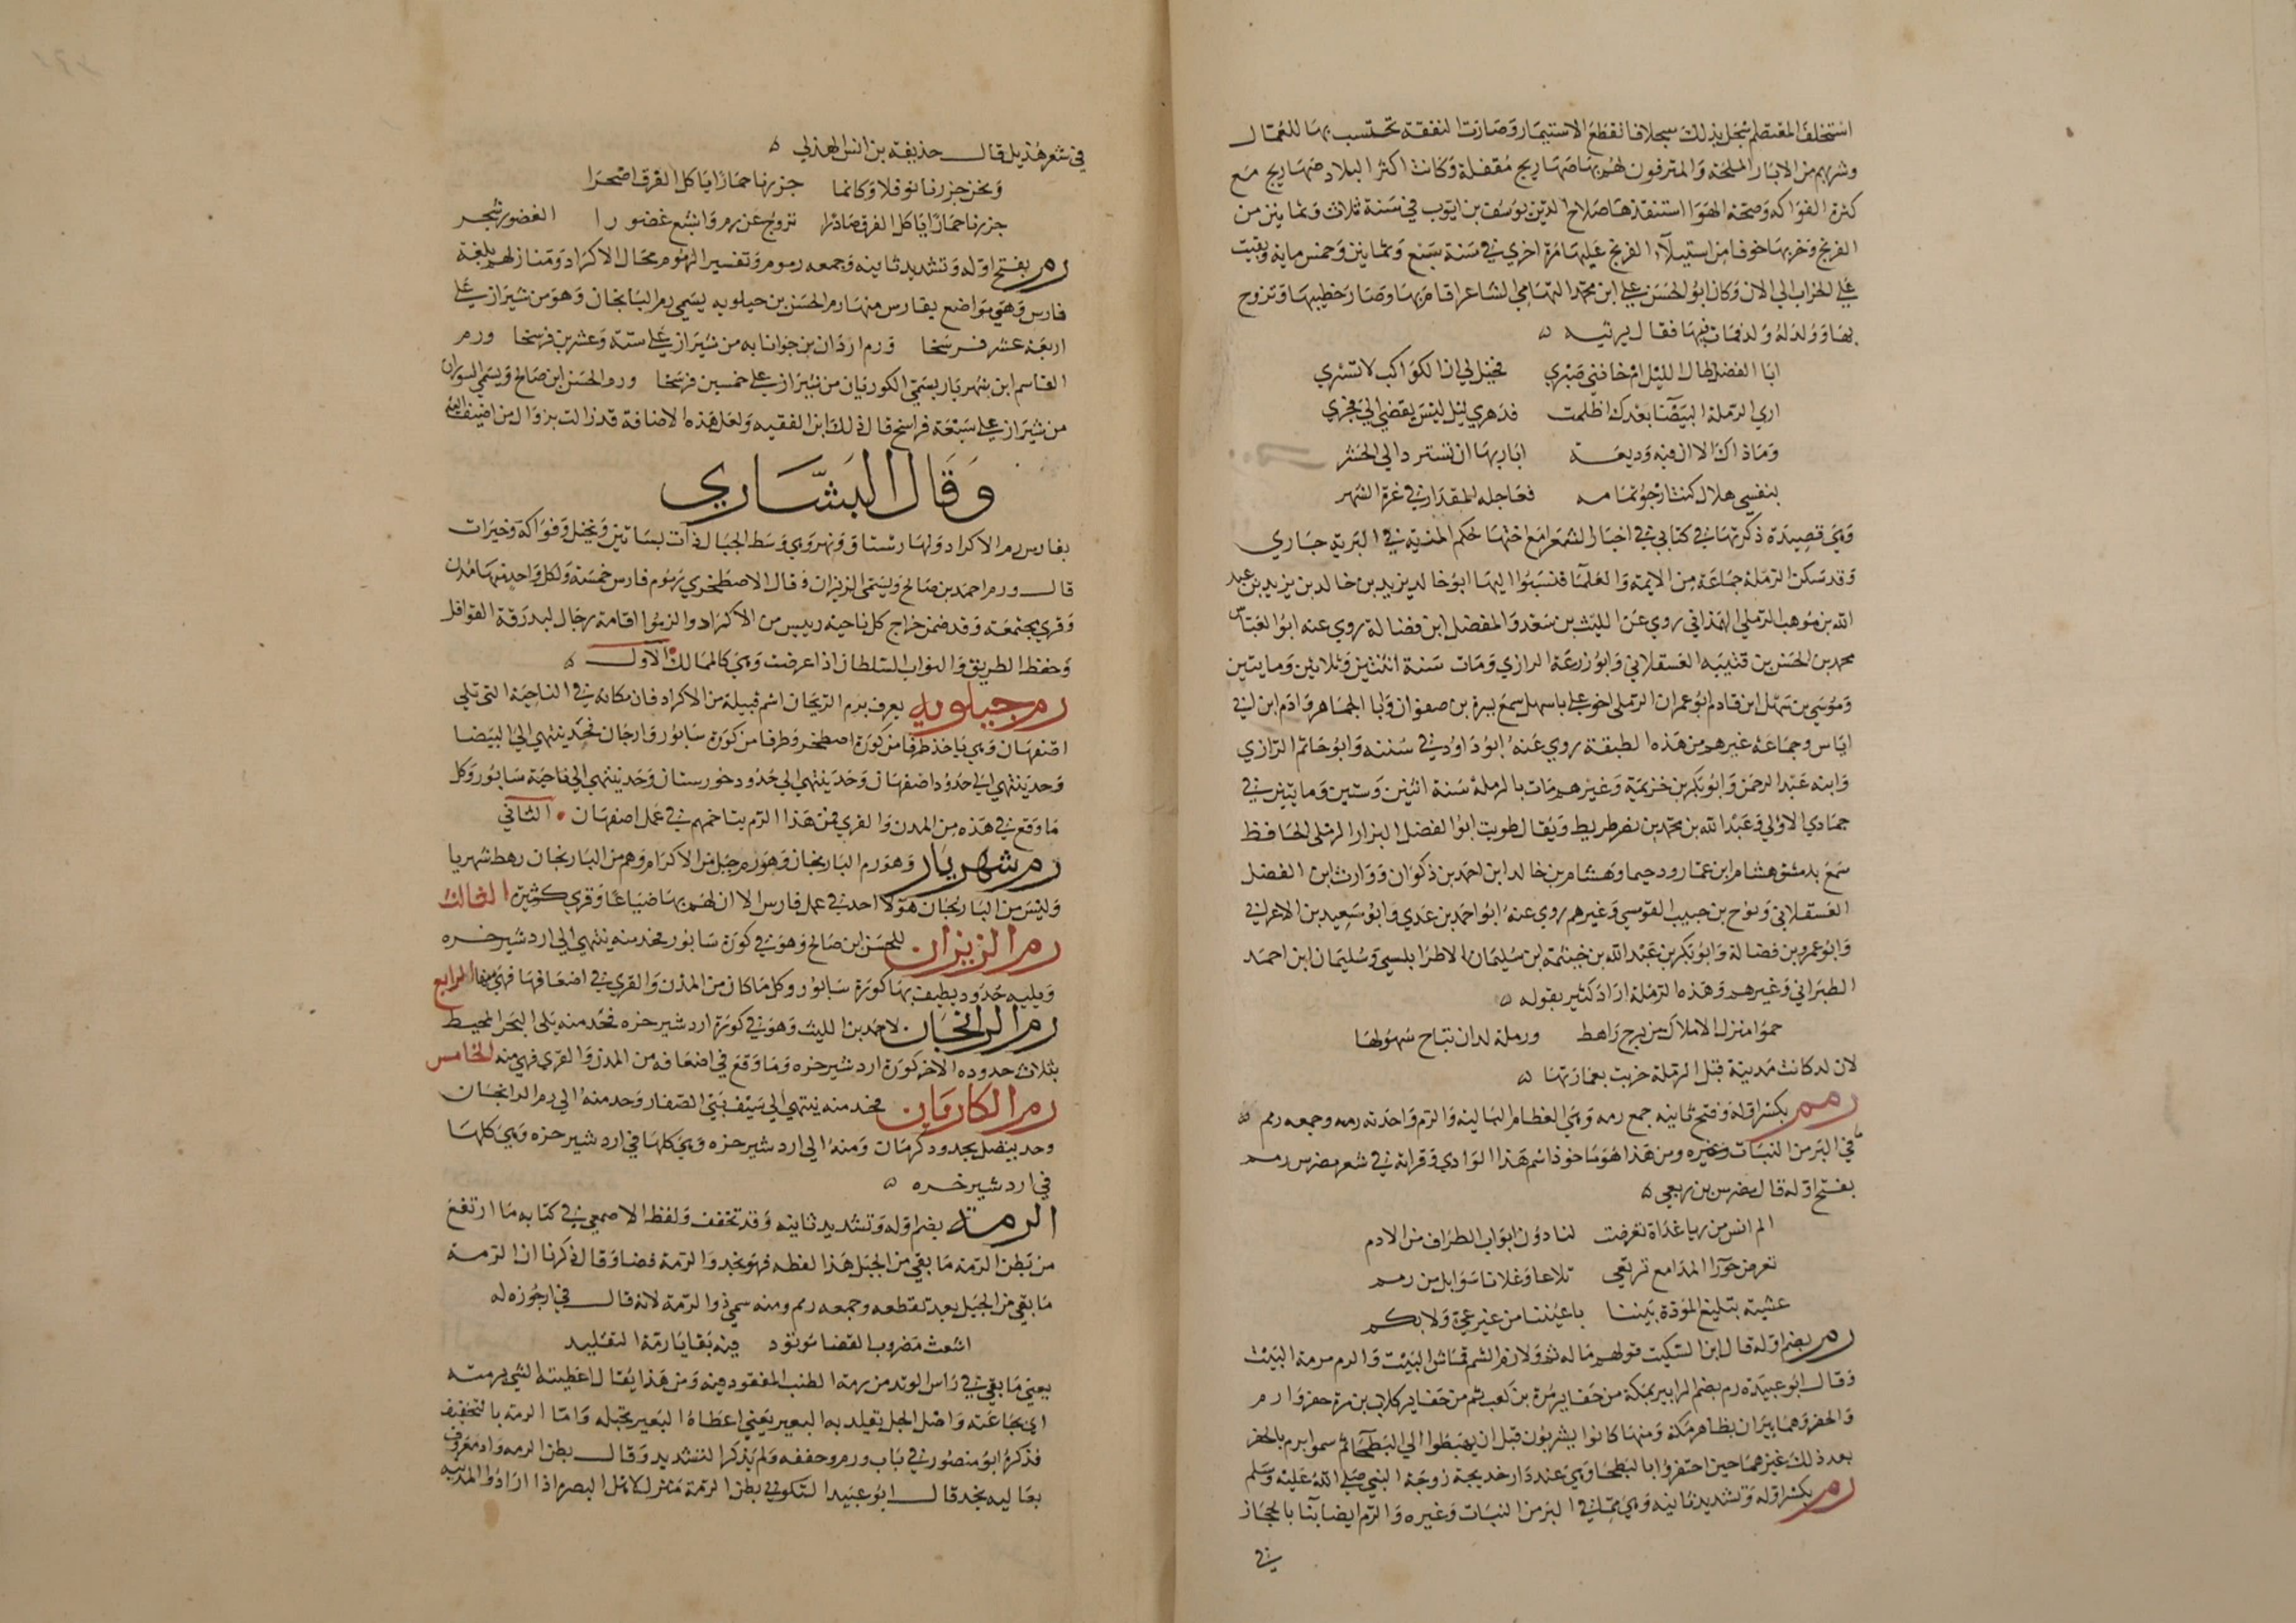 استخلف المعتصم سجل بذلك سجلا فانقطع الاستيمار وصارت النفقة تحتسب بها للعمال
وشربهم من الابار الملحة والمترفون لهم بها صهاريج مقفلة وكانت اكثر البلاد صهاريج مع
كثرة الفواكه وصحة الهوا استنقذها صلاح الدين يوسف بن ايوب في سنة ثلاث وثمانين من
الفرنج وخربها خوفا من استيلاء الفرنج عليها مرة اخري في سنة سبع وثمانين وخمس ماية وبقيت
علي الخراب الي الان وكان ابو الحسن علي ابن محمد التهامي الشاعر اقام بها وصار خطيبها وتزوج
بها وولد له ولد فمات فيها فقال يرثيه
ابا الفضل طال الليل ام خانني صبري فخيل لي ان الكواكب لا تسري
اري الرملة البيضا بعدك اظلمت فدهري ليل ليس يفضي الي فجري
وما ذاك الا ان فيه وديعة ابا ربها ان تسترد الي الحشر
بنفسي هلال كنت ارجو تمامه فعاجله المقدار في غرة الشهر
وهي قصيدة ذكرتها في كتابي في اخبار الشعرا مع اختها حكم المنية في البرية جاري
وقد سكن الرملة جماعة من الايمة والعلما فنسبوا اليها ابو خالد يزيد بن خالد بن يزيد بن عبد
الله بن موهب الرملي الهمذاني روي عن الليث بن سعد والمفضل ابن فضالة روي عنه ابو العباس
محمد بن الحسن بن قتيبه العسقلاني وابو زرعة الرازي ومات سنة اثنثين وثلاثين ومايتين
وموسي بن سهل ابن قادم ابو عمران الرملي اخو علي باسهل سمع يسرة بن صفوان وابا الجماهر وادم ابن ابي
اياس وجماعة غيرهم من هذه الطبقة روي عنه ابو داود في سننه وابو حاتم الرازي
وابنه عبد الرحمن وابو بكر بن خزيمة وغيرهم مات بالرملة سنة اثنين وستين ومايتين في
جمادي الاولي وعبد الله بن محمد بن نصر طريط ويقال طويت ابو الفضل البزار الرملي الحافظ
سمع بدمشق هشام ابن عمار ودحيما وهشام بن خالد ابن احمد بن ذكوان ووارث ابن الفضل
العسقلاني ونوح بن حبيب القومسي وغيرهم روي عنه ابو احمد بن عدي وابو سعيد بن الاعرابي
وابو عمرو بن فضالة وابو بكر بن عبد الله بن خيثمة ابن سليمان الاطرابلسي وسليمان ابن احمد
الطبراني وغيرهم وهذه الرملة اراد كثير بقوله
حموا منزل الاملاك من برج راهط ورملة لد ان تباح سهولها
لان لد كانت مدينة قبل الرملة خربت بعمارتها
رمم بكسر اوله وفتح ثانيه جمع رمه وهي العظام البالية والرم واحدته رمه وجمعه رمم
في البر من النبات وغيره ومن هذا هو ماخوذ اسم هذا الوادي وقراته في شعر مضرس رمم
بفتح اوله قال مضرس بن ربعي
الم انس من ريا غداة تعرضت لنا دون ابواب الطراف من الادم
تعرض حورا المدامع ترتعي تلاعا وغلانا سوايل من رمم
عشية تبليغ المودة بيننا باعيننا من غير عي ولا بكم
رم بضم اوله قال ابن السكيت قولهم ماله ثم ولا رم الثم قماش البيت والرم مرمة البيت
وقال ابو عبيدة رم بضم الرا بير بمكة من حفاير مرة بن كعب ثم من حفاير كلاب بن مرة حفر وارم
والحفر وهما بيران بظاهر مكة ومنها كانوا يشربون قبل ان يهبطوا الي البطحا ثم سموا برم بالحفر
بعد ذلك غيرهما حين احتفروا بالبطحا وهي عند دار خديجة زوجة النبي صلي الله عليه وسلم
رم بكسر اوله وتشديد ثانيه وهي ما في البر من النبات وغيره والرم ايضا بنا بالحجاز
في
في شعر هذيل قال حذيفة بن انس الهذلي
ونحن جزرنا نوفلا وكانما جزرنا حمارا ياكل القرف اصحرا
جزرنا حمارا ياكل القرف صادرا تروح عن رم واشبع غضورا الغضور شجر
رم بفتح اوله وتشديد ثانيه وجمعه رموم وتفسير الرموم محال الاكراد ومنازلهم بلغة
فارس وهي مواضع بفارس منها رم الحسن بن جيلويه يسمي رم البابخان وهو من شيراز علي
اربعة عشر فرسخا ورم اردان بن جوانابه من شيراز علي ستة وعشرين فرسخا ورم
القاسم ابن شهريار يسمي الكوريان من شيراز علي خمسين فرسخا ورم الحسن ابن صالح ويسمي السوران
من شيراز علي سبعة فراسخ قال ذلك ابن الفقيه ولعل هذه الاضافة قد زالت بزوال من اضيف اليه
وقال البشاري
بفارس رم الاكراد ولها رستاق ونهر وهي وسط الجبال ذات بساتين ونخيل وفواكه وخيرات
قال ورم احمد بن صالح ويسمي الزيزان وقال الاصطخري رموم فارس خمسة ولكل واحد منها مدن
وقري مجتمعة وقد ضمن خراج كل ناحية رييس من الاكراد والزموا اقامة رجال لبدرقة القوافل
وحفظ الطريق والنواب السلطان اذا عرضت وهي كالممالك الاول
رم جيلويه يعرف برم الزيجان اسم قبيلة من الاكراد فان مكانه في الناحية التي تلي
اصفهان وهي ياخذ طرفا من كورة اصطخر وطرفا من كورة سابور وارجان فحد ينتهي الي البيضا
وحد ينتهي الي حدود اصفهان وحد ينتهي الي حدود خورستان وحد ينتهي الي ناحية سابور وكل
ما وقع في هذه من المدن والقري فمن هذا الرم يتاخمهم في عمل اصفهان الثاني
رم شهريار وهو رم البازنجان وهو رم جبل من الاكراد وهم من البازنجان رهط شهريا
وليس من البازنجان هولا احد في عمل فارس الا ان لهم بها ضياعا وقري كثيرة الثالث
رم الزيزان للحسن ابن صالح وهو في كورة سابور فحد منه ينتهي الي اردشير خره
ويليه حدود يطيف بها كورة سابور وكل ما كان من المدن والقري في اضعافها فهي منها الرابع
رم الرانجان لاحمد بن الليث وهو في كورة اردشير خره فحد منه يلي البحر المحيط
بثلاث حدوده الاخر كورة اردشير خره وما وقع في اضعافه من المدن والقري فهي منه الخامس
رم الكاريان فحد منه ينتهي الي سيف بني الصفار وحد منه الي رم الرانجان
وحد يتصل بحدود كرمان ومنه الي اردشير خره وهي كلها في اردشير خره وهي كلها
في اردشير خره
الرمة بضم اوله وتشديد ثانيه وقد تخفف ولفظ الاصمعي في كتابه ما ارتفع
من بطن الرمة ما بقي من الجبل هذا لفظه فهو نجد والرمة فضا وقال ذكرنا ان الرمة
ما بقي من الحبل بعد تقطعه وجمعه رمم ومنه سمي ذو الرمة لانه قال في ارجوزه له
اشعث مضروب القفا موتود فيه بقايا رمة التقليد
يعني ما بقي في راس الوتد من رمة الطنب المعقود فيه ومن هذا يقال اعطيته الشي برمته
اي بجماعته واصل الحبل يقلد به البعير يعني اعطاه البعير بحبله واما الرمة بالتخفيف
فذكره ابو منصور في باب ورم وخففه ولم يذكر التشديد وقال بطن الرمه واد معروف
بعاليه نجد قال ابو عبيد السكوني بطن الرمة منزل لاهل البصره اذا ارادوا المدينه